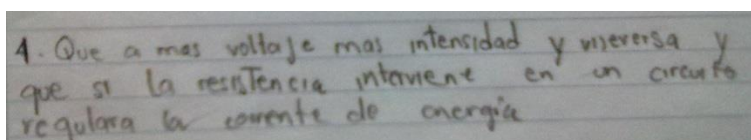 4. Que a mas voltaje mas intensidad y viseversa y
que si la resisTencia interviene en un circuito
regulara la corriente de energia